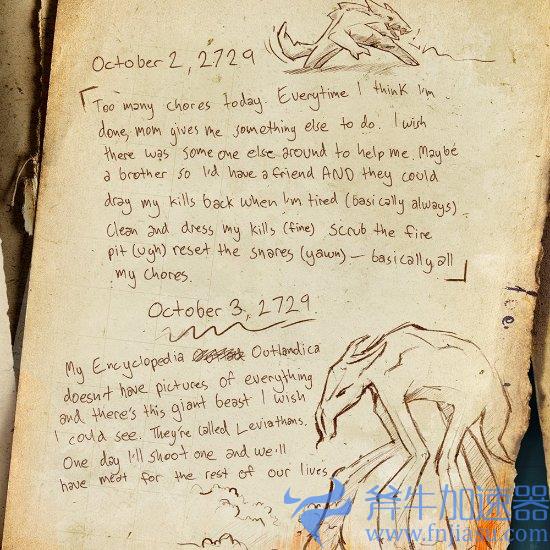 October 2, 2729
Too many chores today. Everytime I think I'm
done, mom gives me something else to do. I wish
there was some one else around to help me. Maybe
a brother so I'd have a friend AND they could
drag my kills back when I'm tired (basically always)
Clean and dress my kills (fine) Scrub the fire
pit (ugh) reset the snares (yawn) — basically all
my chores.
October 3, 2729
My Encyclopedia Outlandica
doesn't have pictures of everything
and there's this giant beast I wish
I could see. They're called Leviathans.
One day I'll shoot one and we'll
have meat for the rest of our lives
斧牛加速器
www.fnjiasu.com